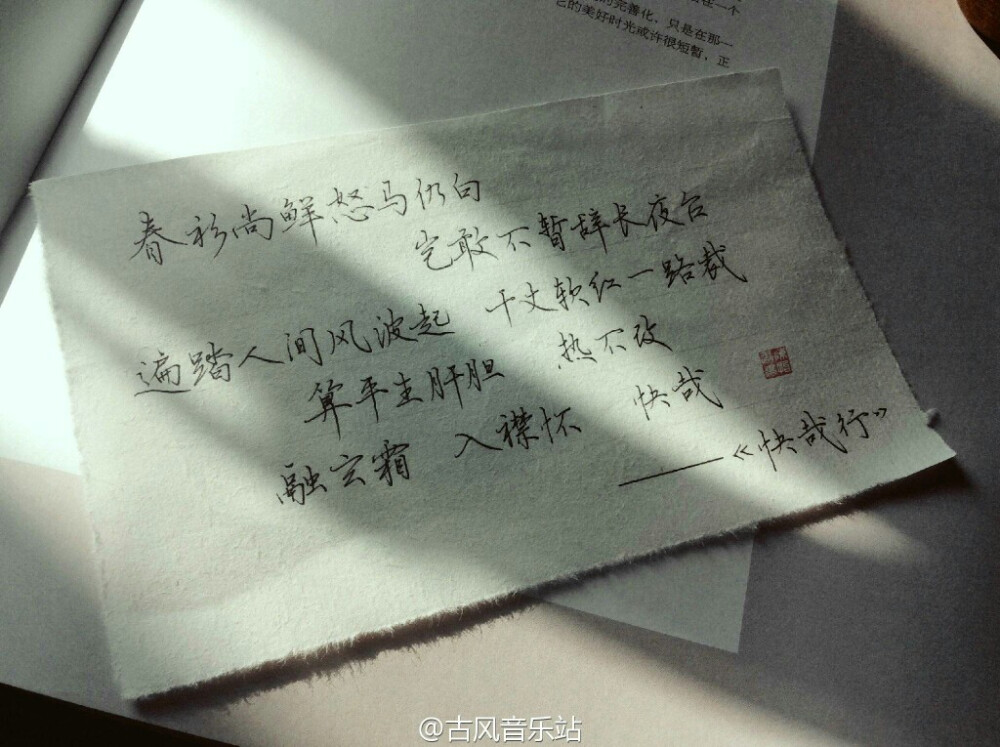 的完善化，只是在那一
它的美好时光或许很短暂，正
春衫尚鲜怒马仍白
岂敢不暂辞长夜台
遍踏人间风波起 千丈软红一路裁
算平生肝胆 热不改
融玄霜 入襟怀 快哉
——《快哉行》
@古风音乐站